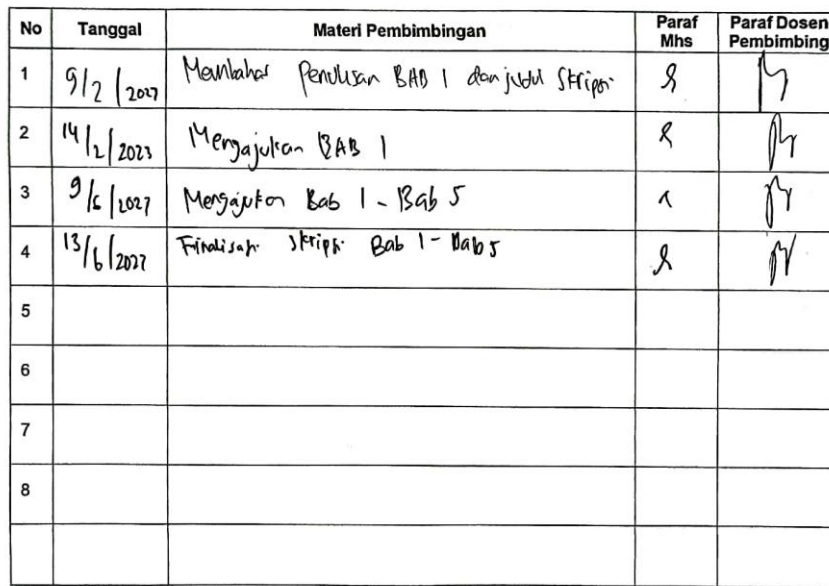 No Tanggal Materi Pembimbingan Paraf Mhs Paraf Dosen Pembimbing
1 9/2/2023 Membahas Penulisan BAB 1 dan judul Skripsi
2 14/2/2023 Mengajukan BAB 1
3 9/6/2023 Mengajukan Bab 1 - Bab 5
4 13/6/2023 Finalisasi Skripsi Bab 1 - Bab 5
5
6
7
8